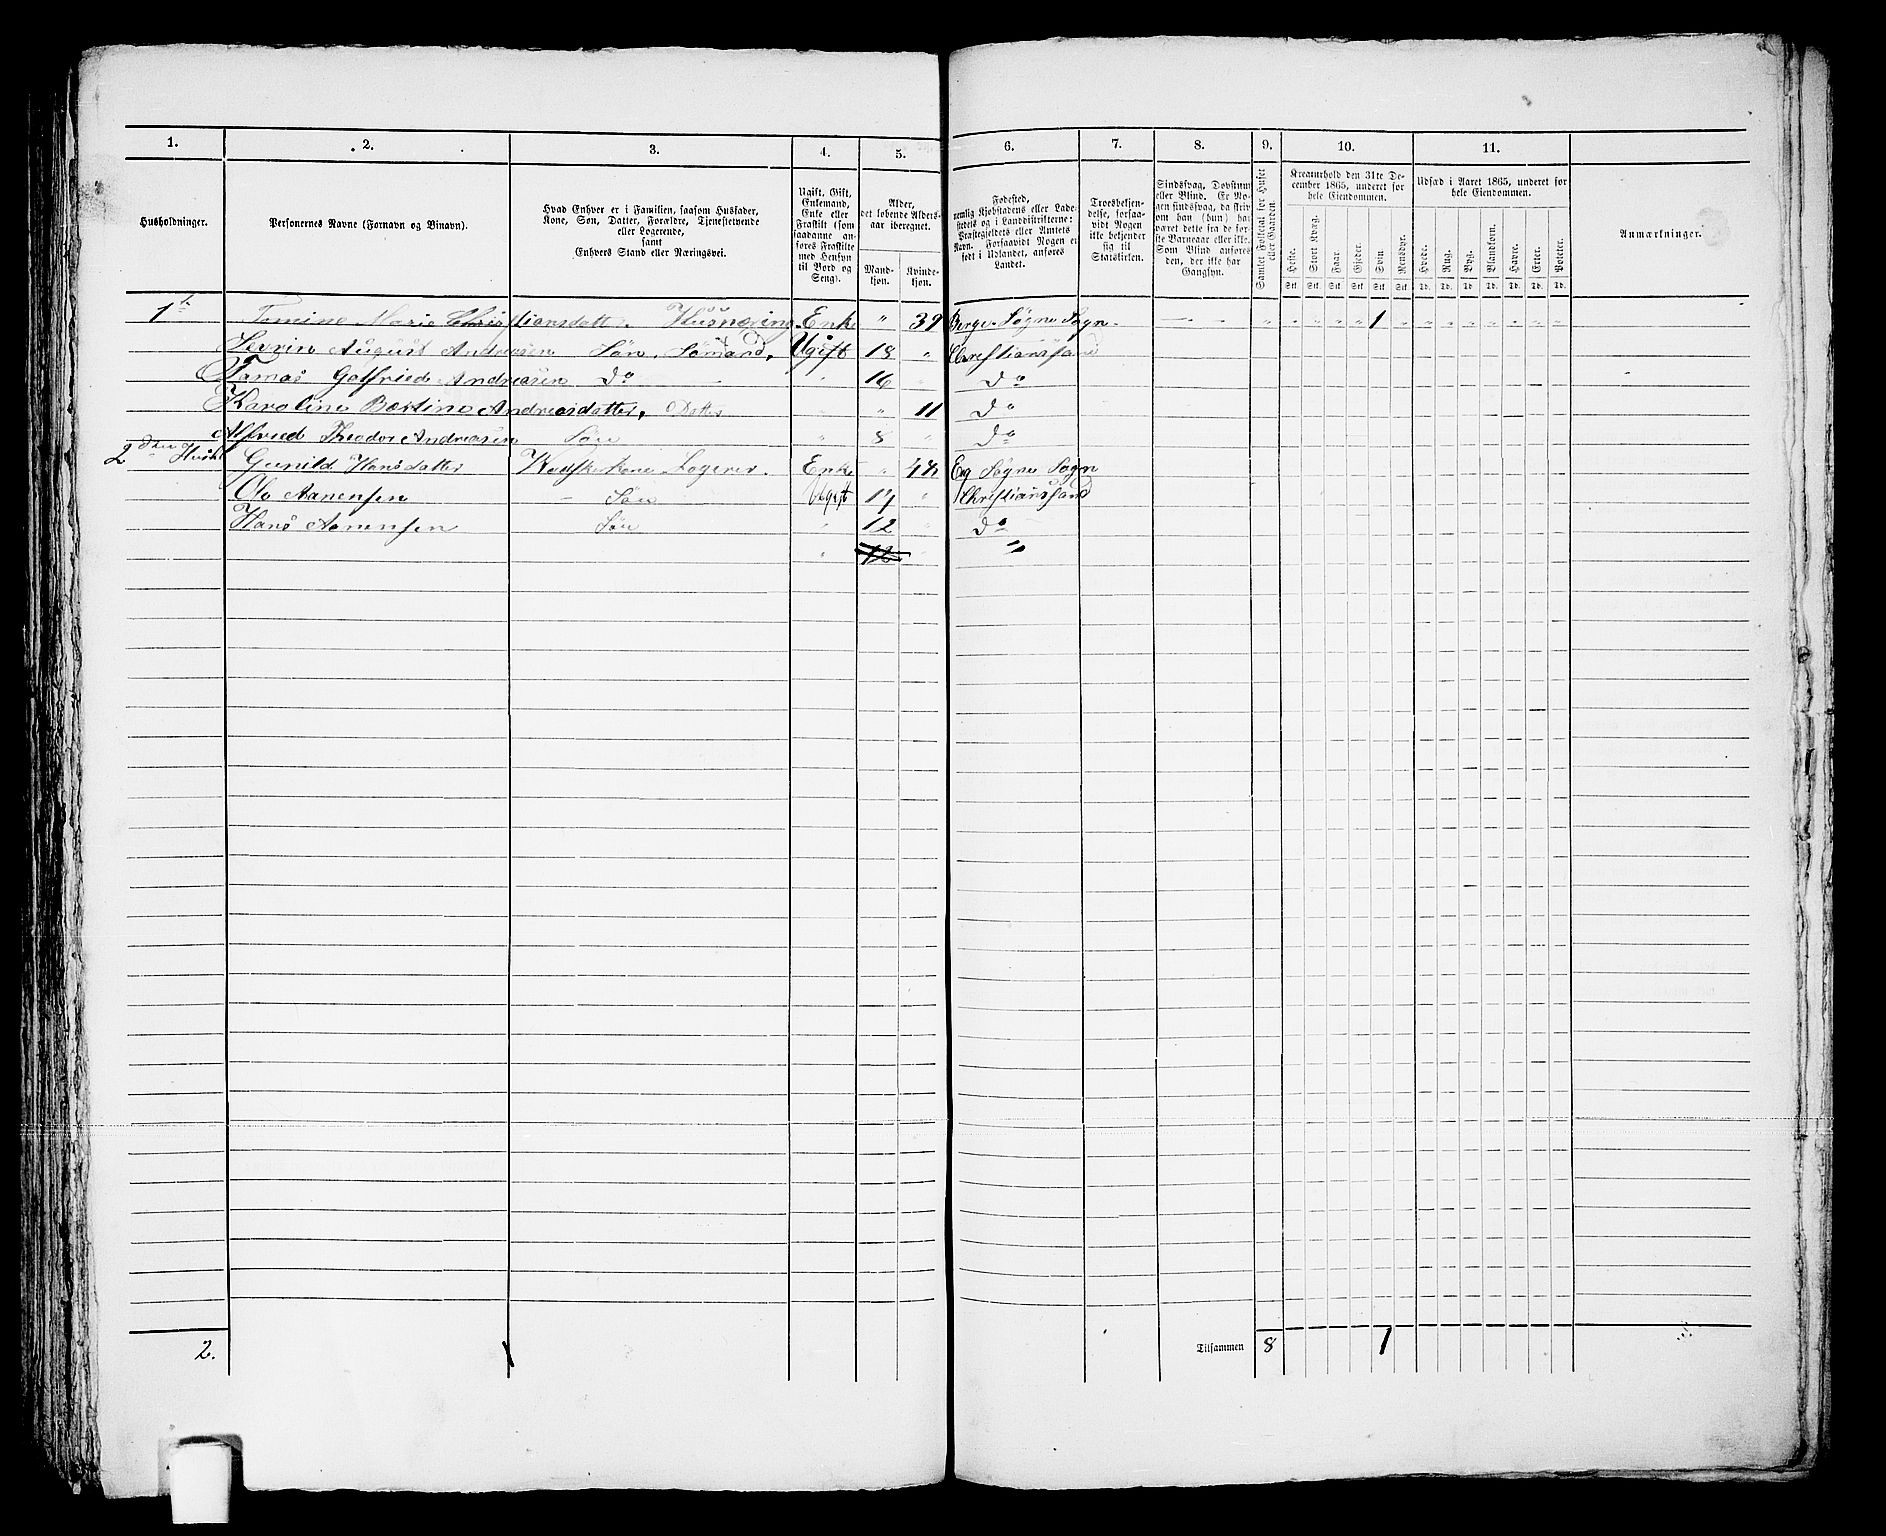 1. 2. 3. 4. 5. 6. 7. 8. 9. 10. 11.
Husholdninger.
Personernes Navne (Fornavn og Binavn).
Hvad Enhver er i Familien, saasom Husfader,
Kone, Søn, Datter, Forældre, Tjenestetyende
eller Logerende,
samt
Enhvers Stand eller Næringsvei.
Ugift, Gift,
Enkemand,
Enke eller
Fraskilt (som
saadanne an-
føres Fraskilte
med Hensyn
til Bord og
Seng).
Alder,
det løbende Alders-
aar iberegnet.
Mand-
kjøn.
Kvinde-
kjøn.
Fødested,
nemlig Kjøbstadens eller Lade-
stedets og i Landdistrikterne:
Præstegjeldets eller Amtets
Navn. Forsaavidt Nogen er
født i Udlandet, anføres
Landet.
Troesbekjen-
delse, forsaa-
vidt Nogen
ikke bekjender
sig til
Statskirken.
Sindssvag, Døvstum
eller Blind. Er No-
gen sindssvag, da skriv
om han (hun) har
været dette fra de før-
ste Barneaar eller ikke.
Som Blind anføres
den, der ikke har
Gangsyn.
Samlet Folketal for Huset
eller Gaarden.
Kreaturhold den 31te De-
cember 1865, underet for
hele Eiendommen.
Heste. Stort Kvæg. Faar Gjeder. Svin Rensdyr.
Stk. Stk. Stk. Stk. Stk. Stk.
Udsæd i Aaret 1865, underet for
hele Eiendommen.
Hvede. Rug. Byg. Blandkorn. Havre. Erter. Poteter.
Td. Td. Td. Td. Td. Td. Td.
Anmærkninger.
1 Tomine Marie Christiansdatt. Husnæring. Enke " 39 Søgne Sogn. 1
Sevrin August Andreasen Søn, Sømand, Ugift 18 " Christianssand
Tomas Gotfried Andreasen Do " 16 " Do
Karoline Andreasdatter, Datter " " 11 Do
Alfried Theodor Andreasen Søn " 8 " Do
2den Hush. Gunild Hansdatter Vadskekone Logerer. Enke " Eg Søgne Sogn
Ole Aanensen Søn Ugift 14 " Christianssand
Hans Aanensen Søn " 12 " Do
" 12 " "
2. Tilsammen 8 1